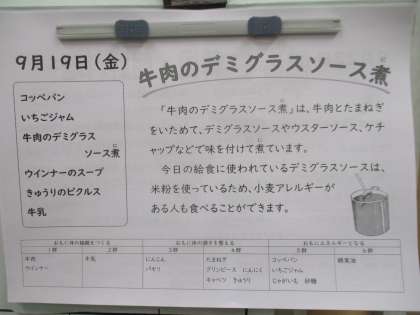 9月19日(金)
牛肉のデミグラスソース煮
コッペパン
いちごジャム
牛肉のデミグラス
ソース煮
ウインナーのスープ
きゅうりのピクルス
牛乳
「牛肉のデミグラスソース煮」は、牛肉とたまねぎ
をいためて、デミグラスソースやウスターソース、ケチ
ャップなどで味を付けて煮ています。
今日の給食に使われているデミグラスソースは、
米粉を使っているため、小麦アレルギーが
ある人も食べることができます。
おもに体の組織をつくる おもに体の調子を整える おもにエネルギーとなる
1群 2群 3群 4群 5群 6群
牛肉 牛乳 にんじん たまねぎ コッペパン
ウインナー パセリ グリンピース にんにく いちごジャム
キャベツ きゅうり じゃがいも 砂糖